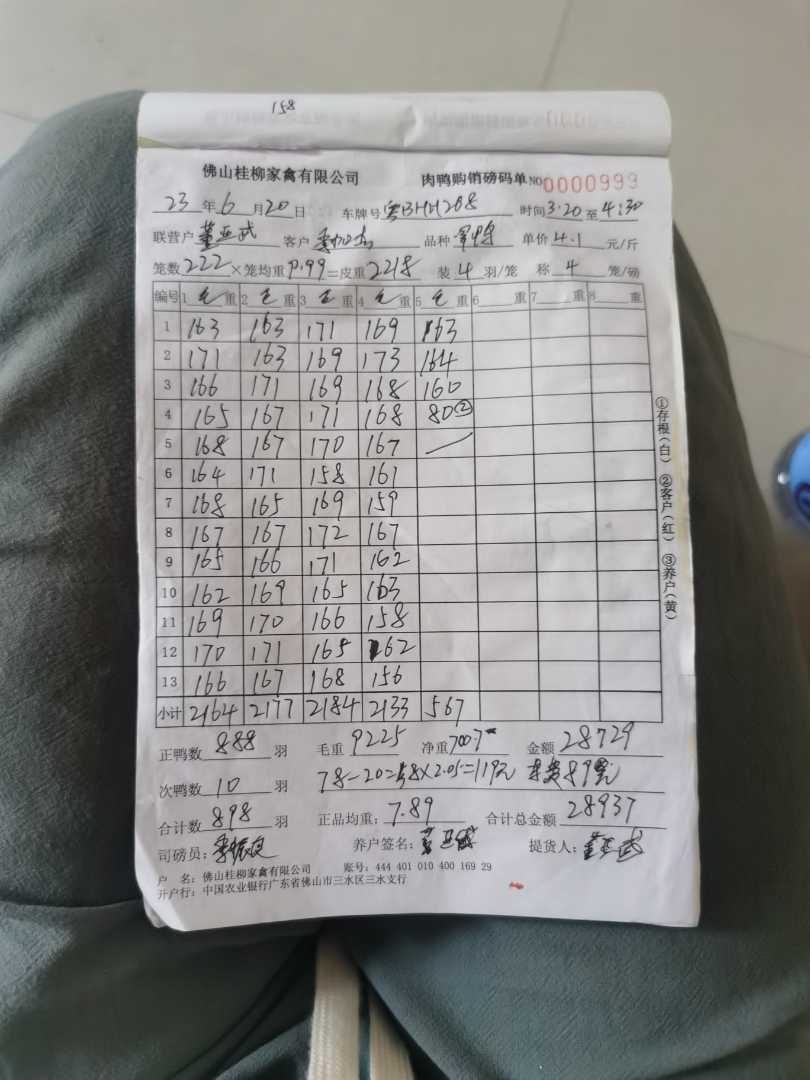 158
佛山桂柳家禽有限公司 肉鸭购销磅码单 NO 0000999
23 年 6 月 20 日 车牌号 粤BHH268 时间 3:20 至 4:30
联营户 董亚武 客户 品种 单价 4.1 元/斤
笼数 222 × 笼均重 9.99 = 皮重 2218 装 4 羽/笼 称 4 笼/磅
编号 1 毛 重 2 毛 重 3 毛 重 4 毛 重 5 毛 重 6 重 7 重 8 重
1 163 163 171 169 163
2 171 163 169 173 164
3 166 171 169 168 160
4 165 167 171 168 80②
5 168 167 170 167
6 164 171 158 161
7 168 165 169 159
8 167 167 172 167
9 165 166 171 162
10 162 169 165 163
11 169 170 166 158
12 170 171 165 162
13 166 167 168 156
小计 2164 2177 2184 2133 567
①存根(白) ②客户(红) ③养户(黄)
正鸭数 888 羽 毛重 9225 净重 7007 金额 28729
次鸭数 10 羽 78-20=58×2.05=119元 89元
合计数 898 羽 正品均重: 7.89 合计总金额 28937
司磅员: 养户签名: 董亚武 提货人: 董亚武
户 名: 佛山桂柳家禽有限公司 账号: 444 401 010 400 169 29
开户行: 中国农业银行广东省佛山市三水区三水支行